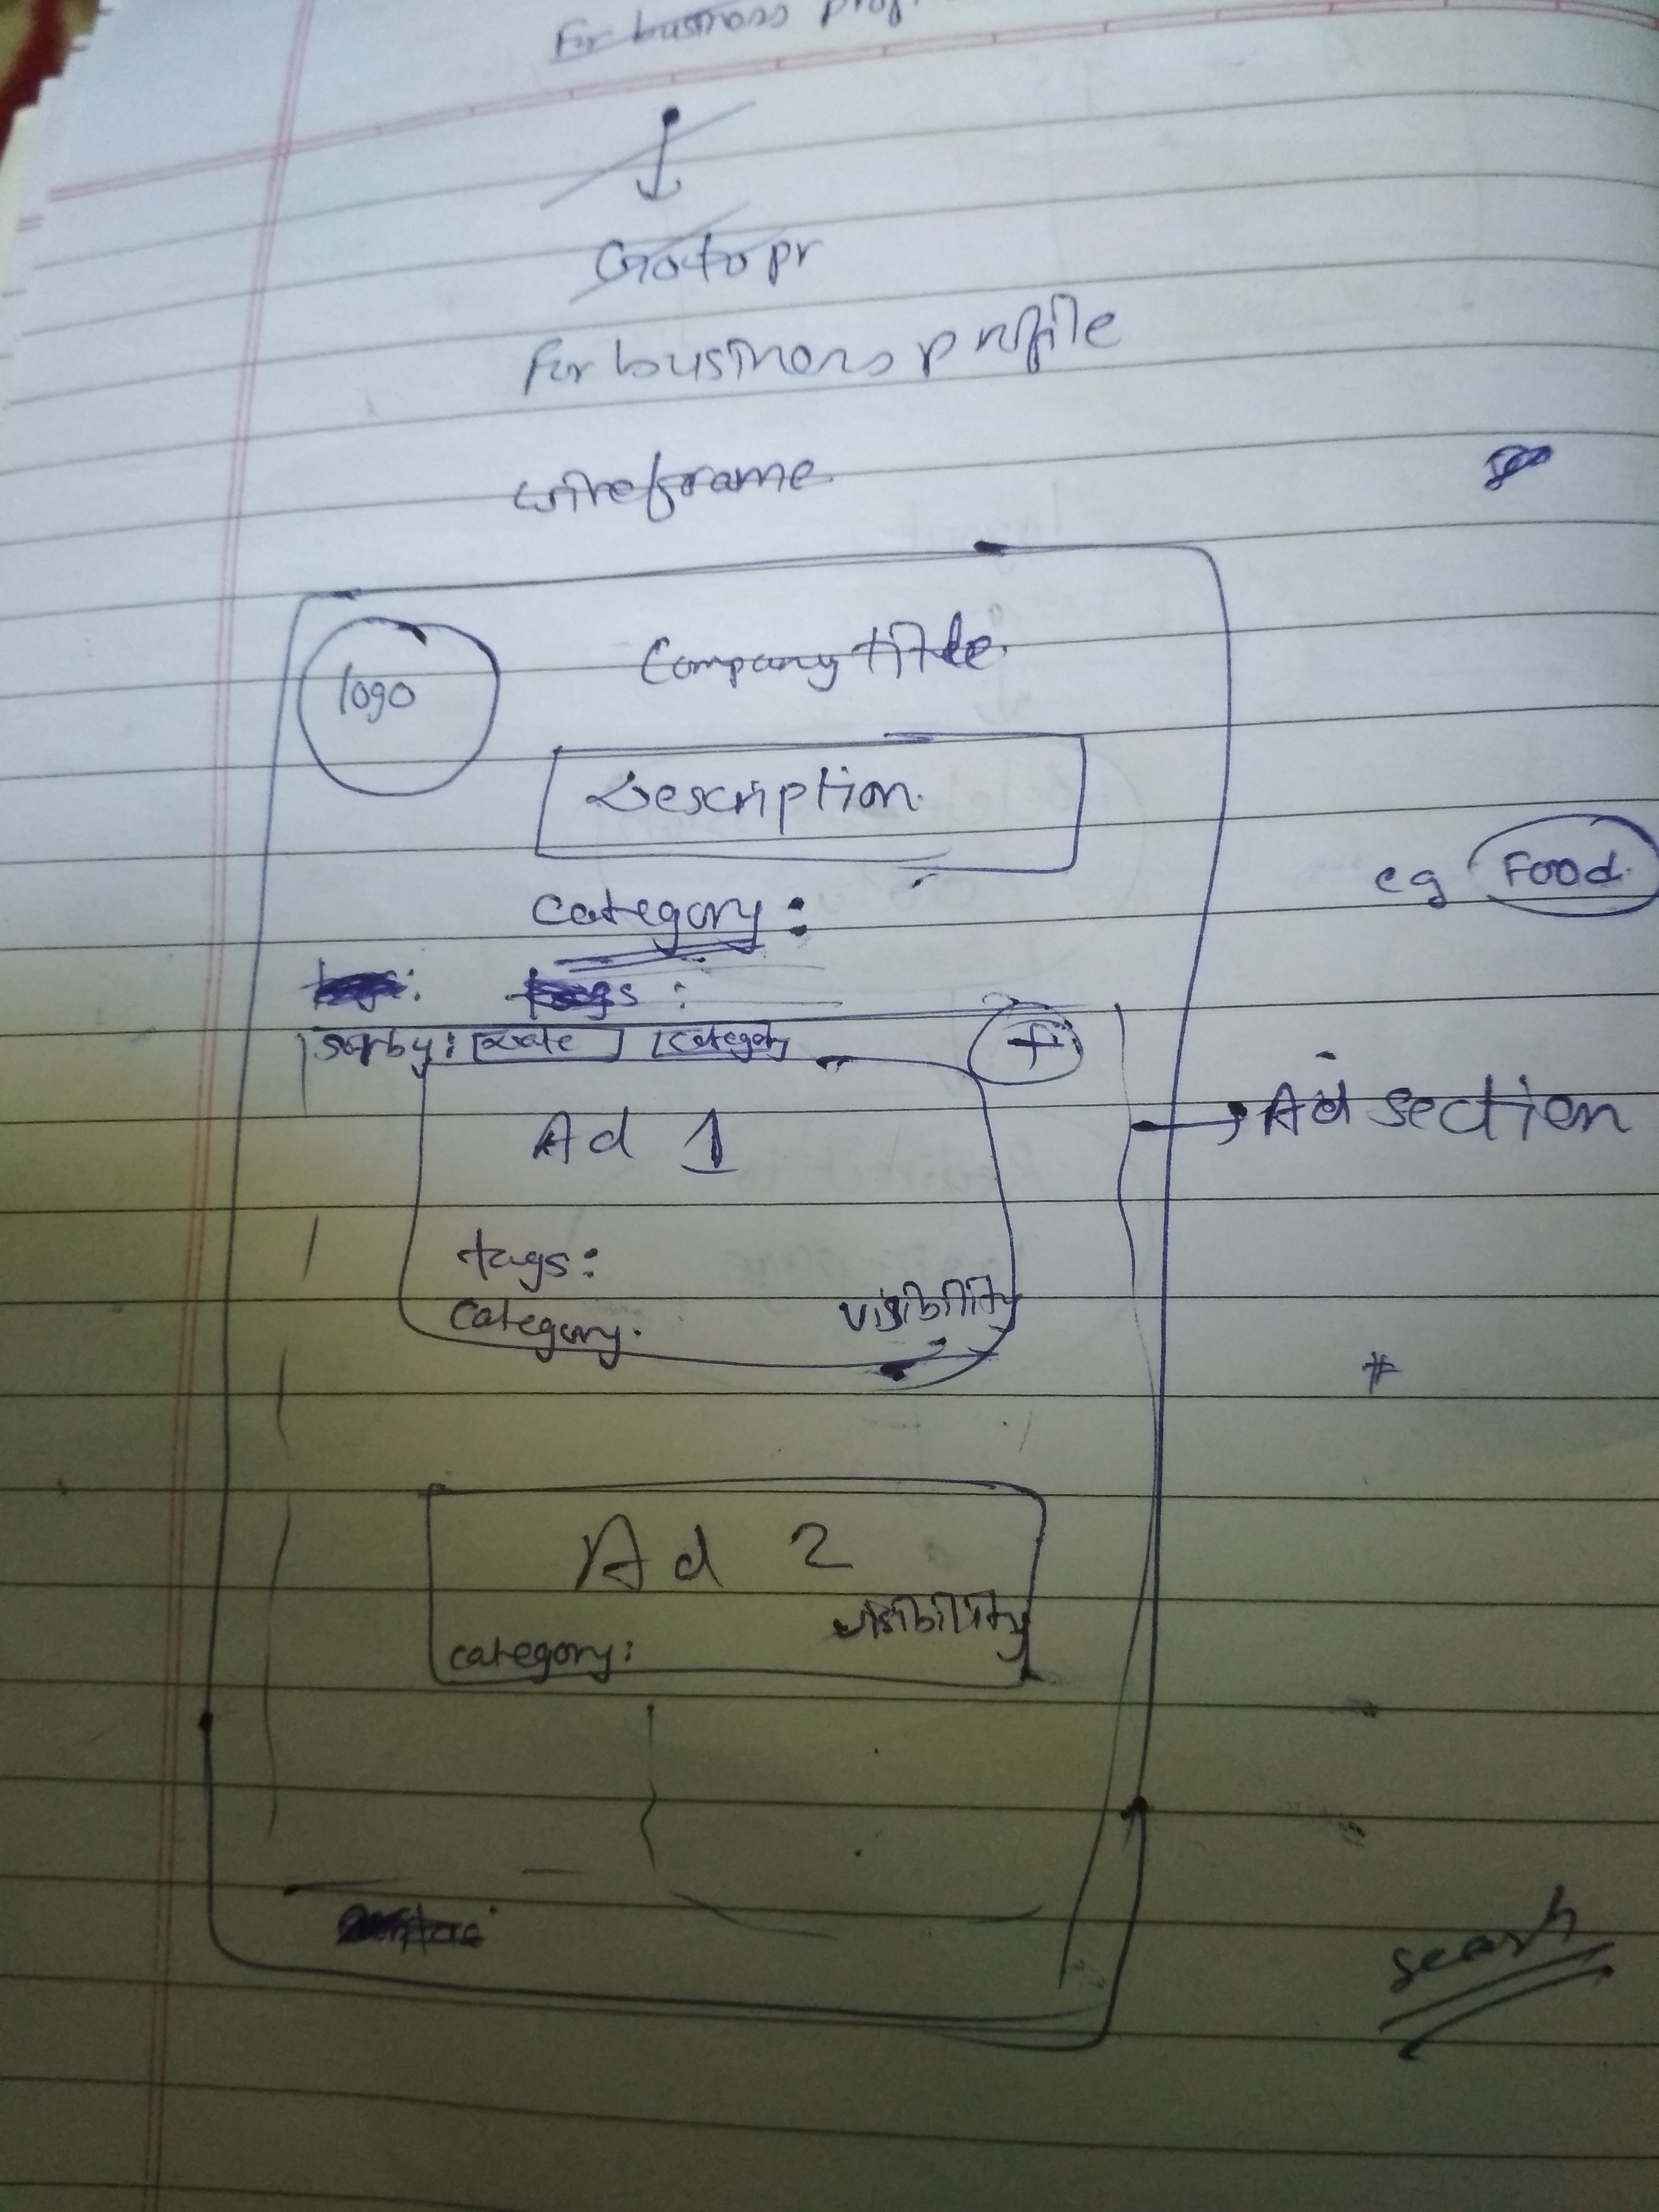 For business
Goto pr
For business profile
wireframe
Company title.
logo
Description.
eg Food.
category:
sorby: Date category +
Ad section
Ad 1
tags:
category.
visibility
#
Ad 2
visibility
category:
search